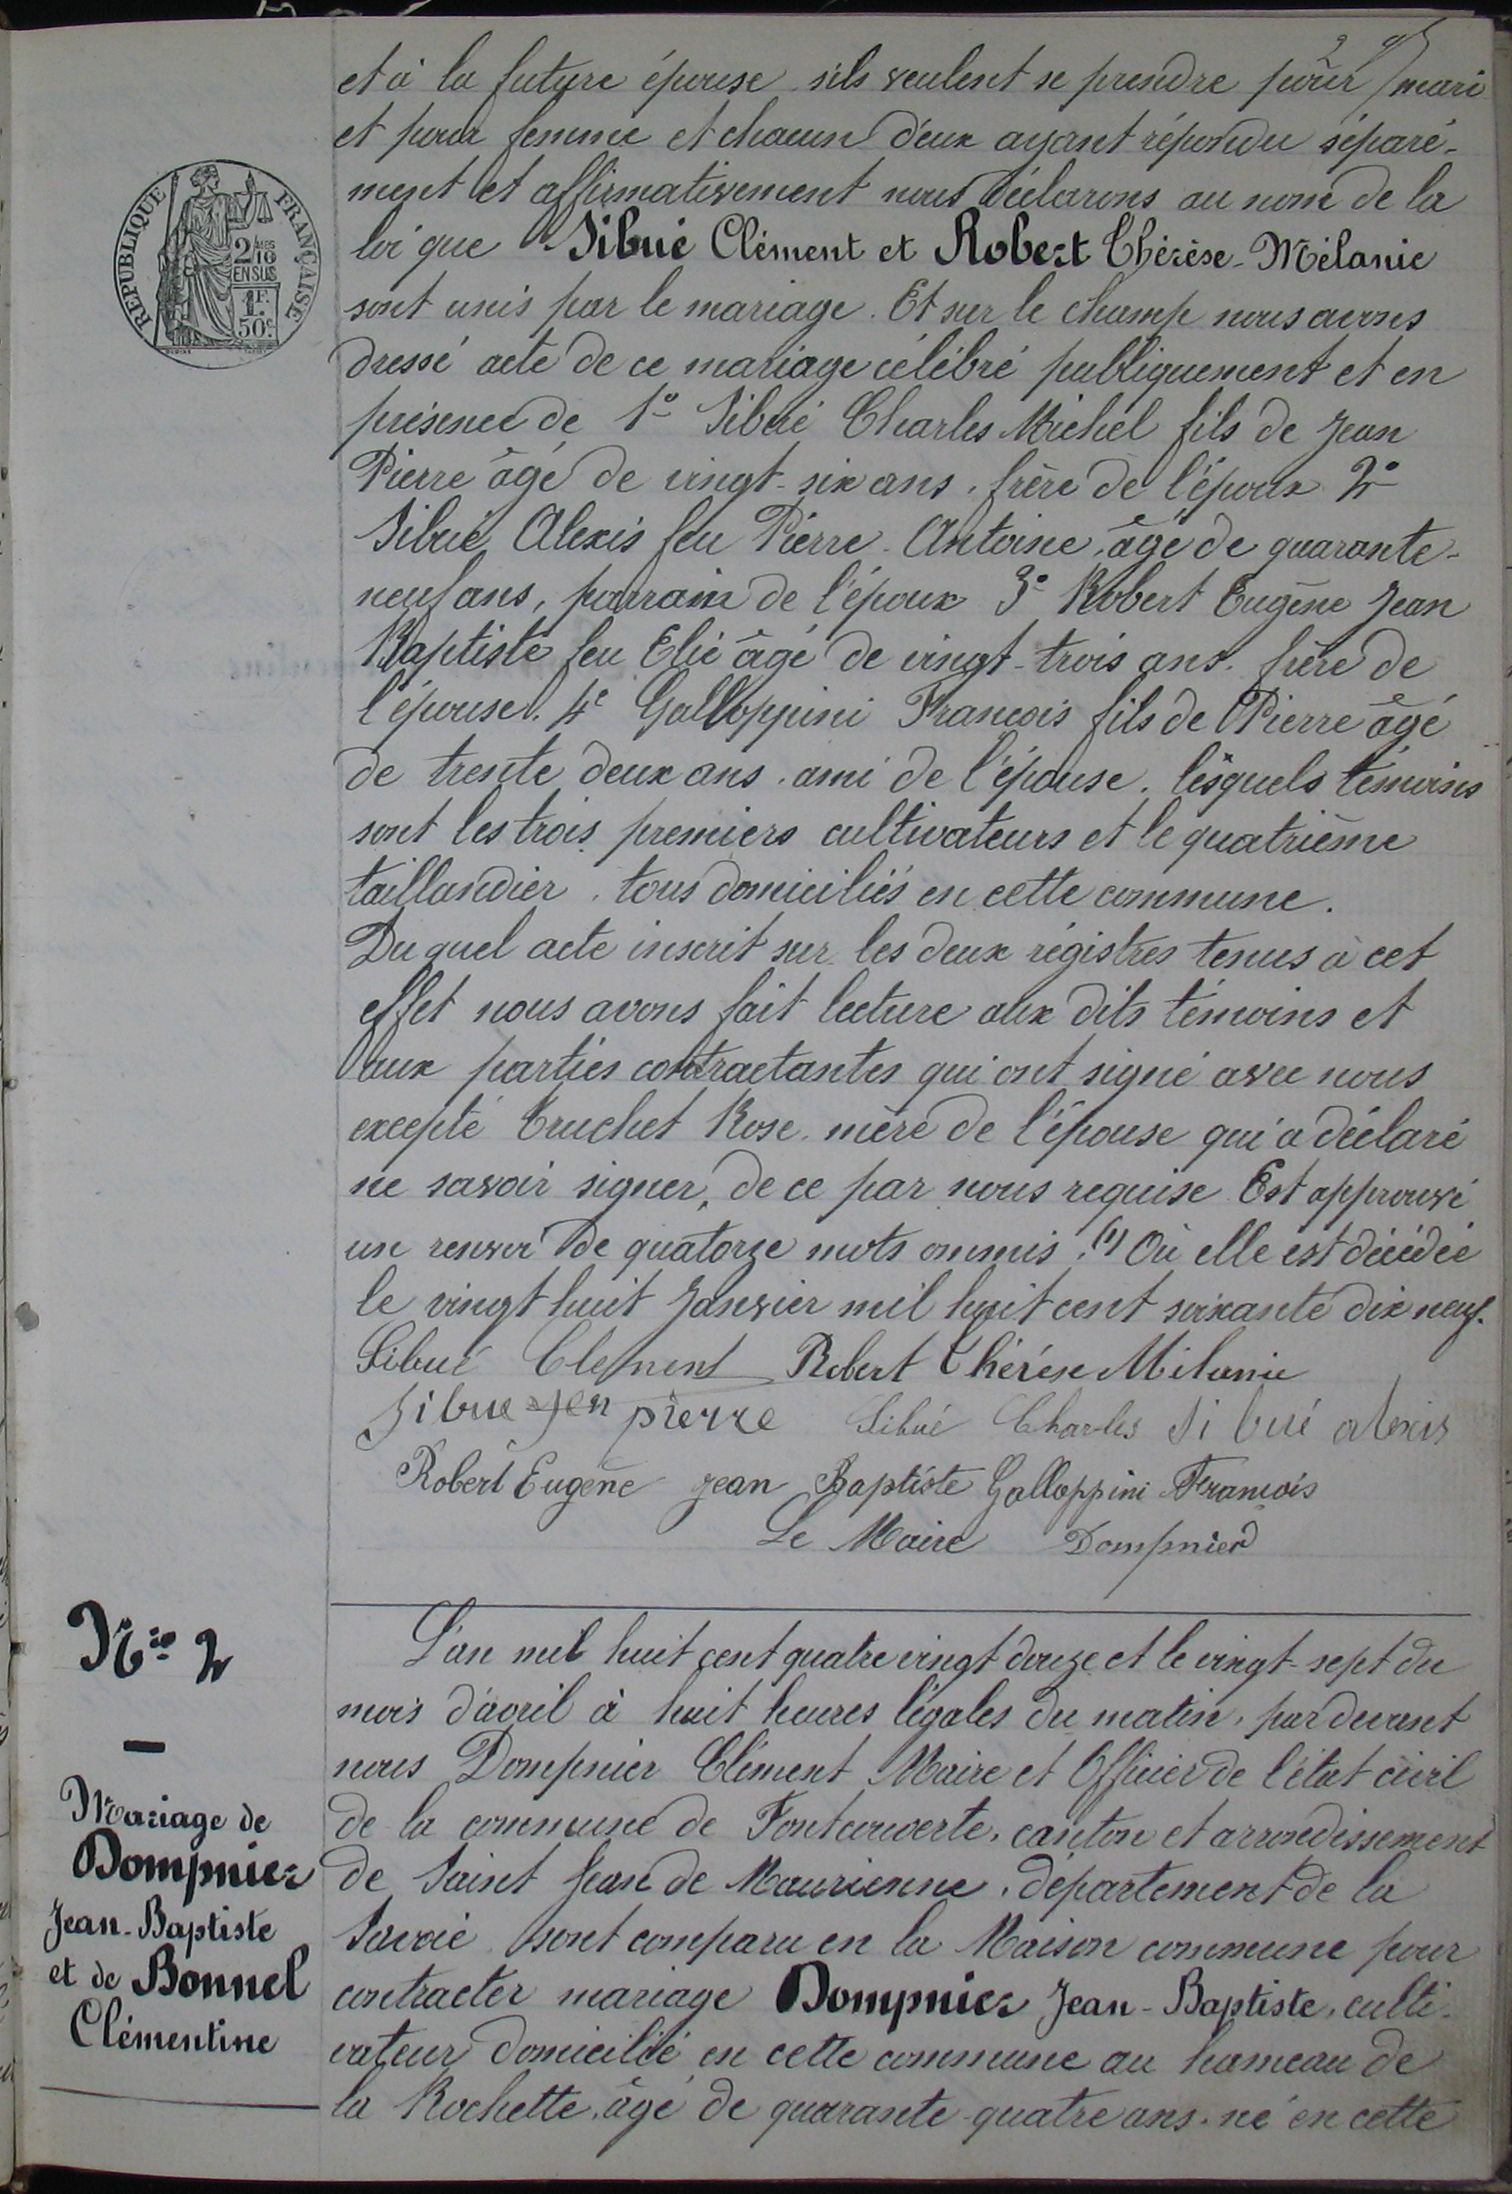 et à la future épouse s'ils veulent se prendre pour mari
et pour femme et chacun d'eux ayant répondu séparé-
ment et affirmativement nous déclarons au nom de la
loi que Sibué Clément et Robert Thérèse-Mélanie
sont unis par le mariage. Et sur le champ nous avons
dressé acte de ce mariage célébré publiquement et en
présence de 1° Sibué Charles Michel fils de Jean
Pierre âgé de vingt-six ans, frère de l'époux 2°
Sibué Alexis feu Pierre-Antoine, âgé de quarante-
neuf ans, parrain de l'époux 3° Robert Eugène Jean
Baptiste feu Elie âgé de vingt-trois ans. frère de
l'épouse. 4e Galloppini François fils de Pierre âgé
de trente deux ans. ami de l'épouse. lesquels témoins
sont les trois premiers cultivateurs et le quatrième
taillandier. tous domiciliés en cette commune.
Du quel acte inscrit sur les deux régistres tenus à cet
effet nous avons fait lecture aux dits témoins et
aux parties contractantes qui ont signé avec nous
excepté Truchet Rose. mère de l'épouse qui a déclaré
ne savoir signer, de ce par nous requise Est approuvé
un renvoi de quatorze mots ommis. (1) Où elle est décédée
le vingt huit Janvier mil huit cent soixante dix neuf.
Sibué Clement Robert Thérèse Mélanie
Sibue Jen pierre Sibué Charles Sibué alexis
Robert Eugène Jean Baptiste Galloppini François
Le Maire Dompnier
REPUBLIQUE FRANÇAISE
2/10
EN SUS
1F.
50c.
Nro 2
Mariage de
Dompnier
Jean-Baptiste
et de Bonnel
Clémentine
L'an mil huit cent quatre vingt douze et le vingt-sept du
mois d'avril à huit heures légales du matin, par devant
nous Dompnier Clément Maire et Officier de l'état civil
de la commune de Fontcouverte, canton et arrondissement
de Saint Jean de Maurienne, département de la
Savoie sont comparu en la Maison commune pour
contracter mariage Dompnier Jean-Baptiste, culti-
vateur domicilié en cette commune au hameau de
la Rochette, âgé de quarante-quatre ans. né en cette